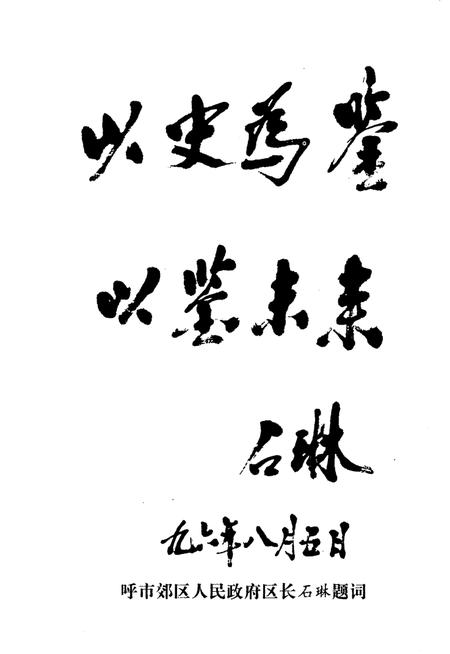 以史为鉴
以鉴未来
石琳
九六年八月五日
呼市郊区人民政府区长石琳题词